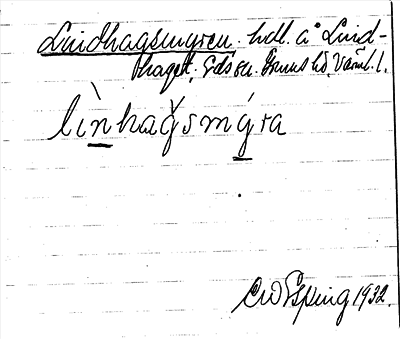 Lindhagsmyren. hdl. å Lind-
haget. Eds sn. Grums hd. Värml. l.
lìnhağsmýra
CW Esping 1932.